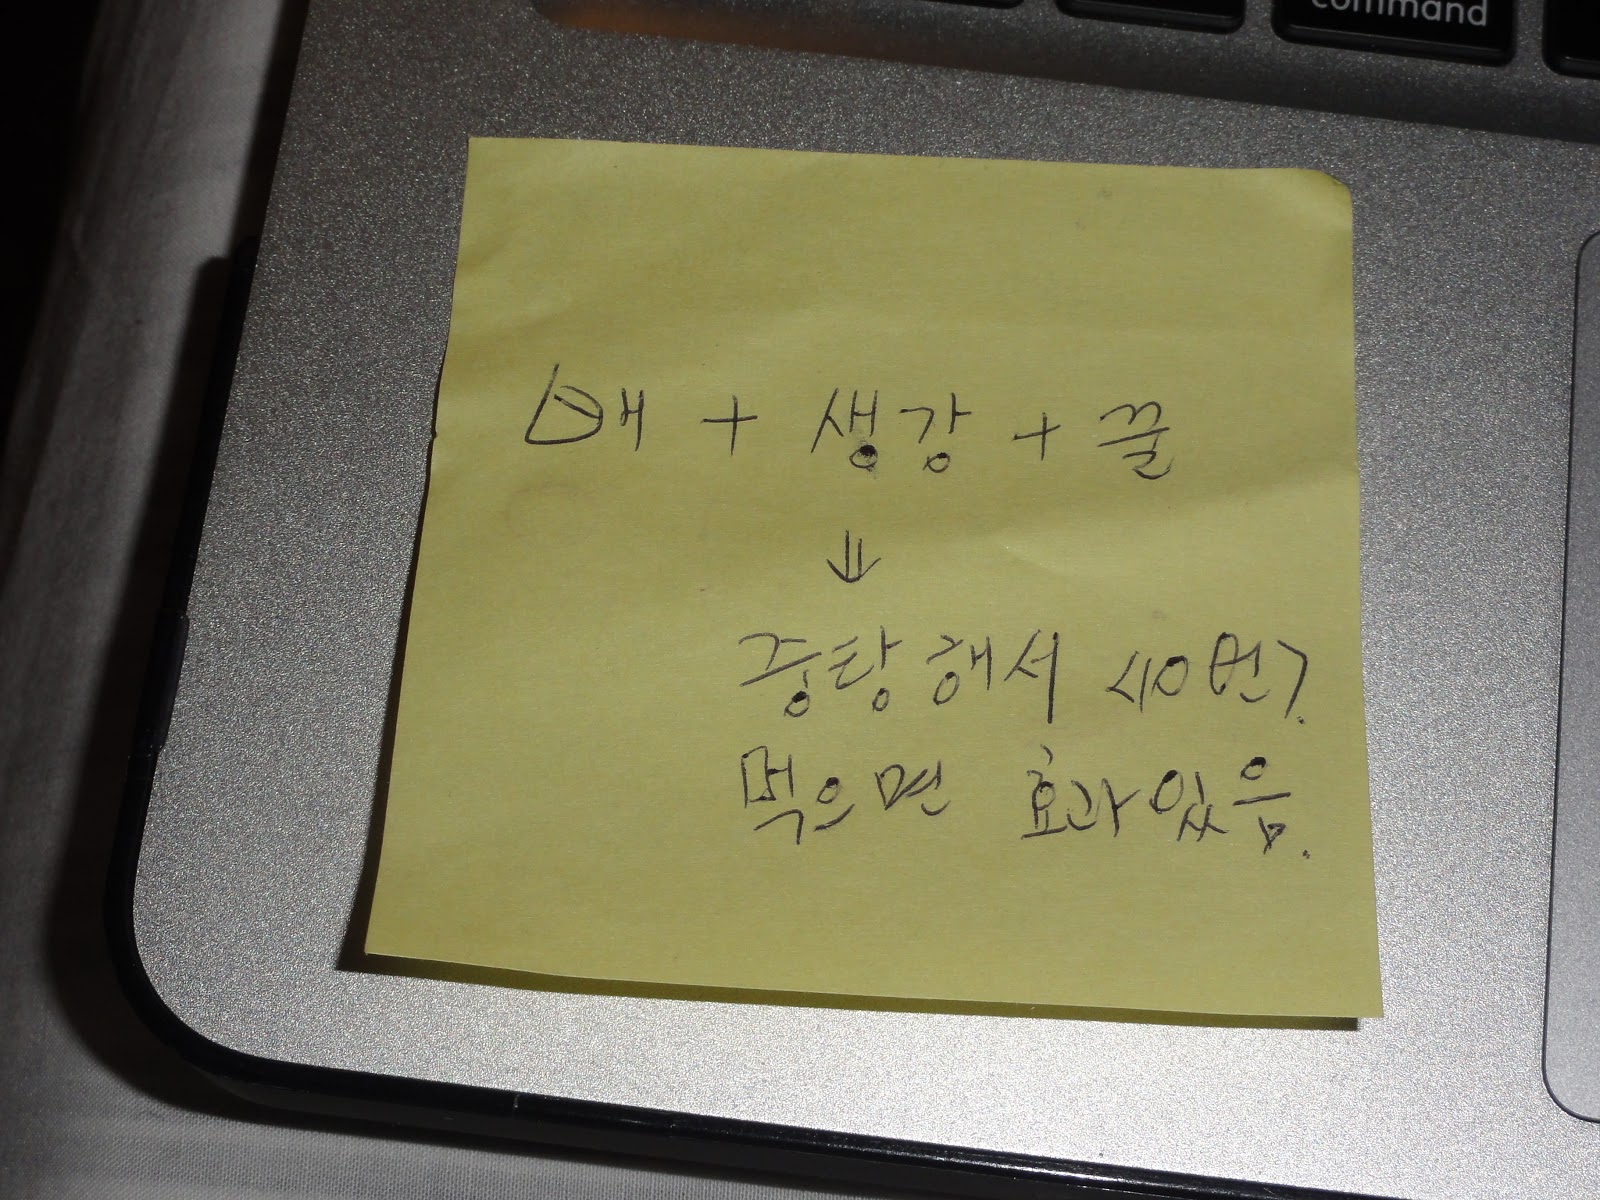 command
배 + 생강 + 꿀
⇓
중탕해서 40번?
먹으면 효과있음.